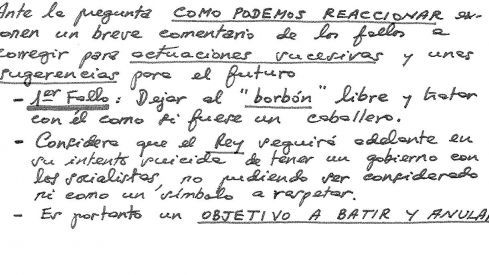 Ante la pregunta COMO PODEMOS REACCIONAR ex-
onen un breve comentario de los fallos a
corregir para actuaciones sucesivas y unas
sugerencias para el futuro
- 1er Fallo: Dejar al "borbón" libre y tratar
con él como si fuese un caballero.
- Considera que el Rey seguirá adelante en
su intento suicida de tener un gobierno con
los socialistas, no pudiendo ser considerado
ni como un símbolo a respetar.
- Es portanto un OBJETIVO A BATIR Y ANULAR